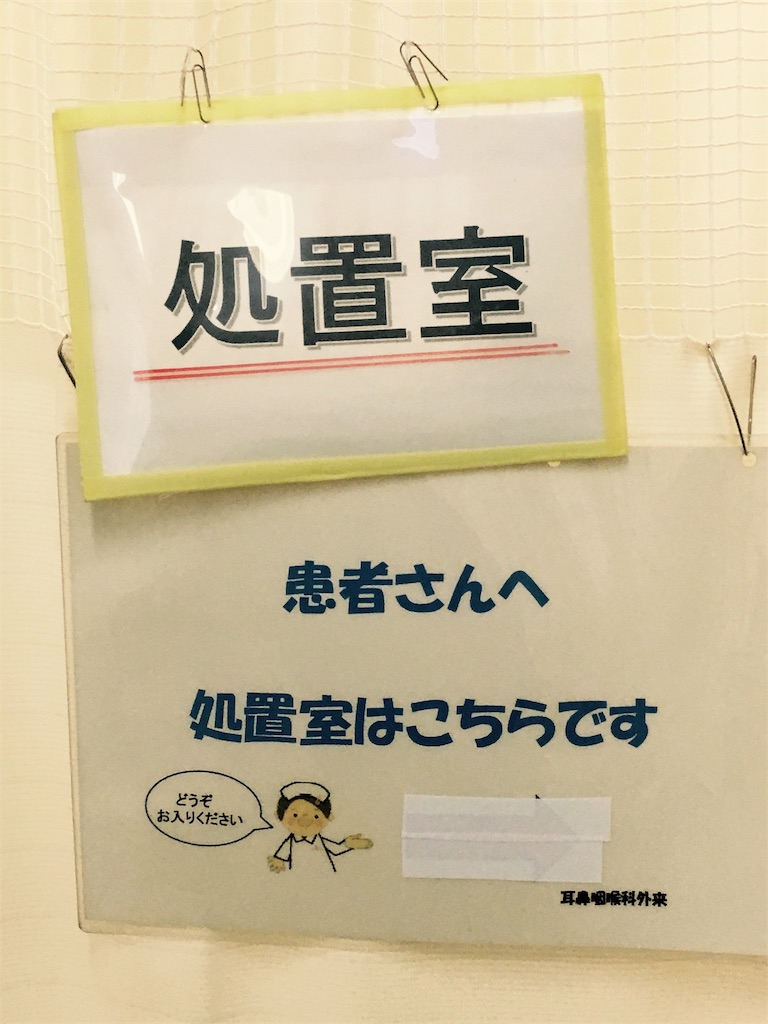 処置室
患者さんへ
処置室はこちらです
どうぞ
お入りください
耳鼻咽喉科外来